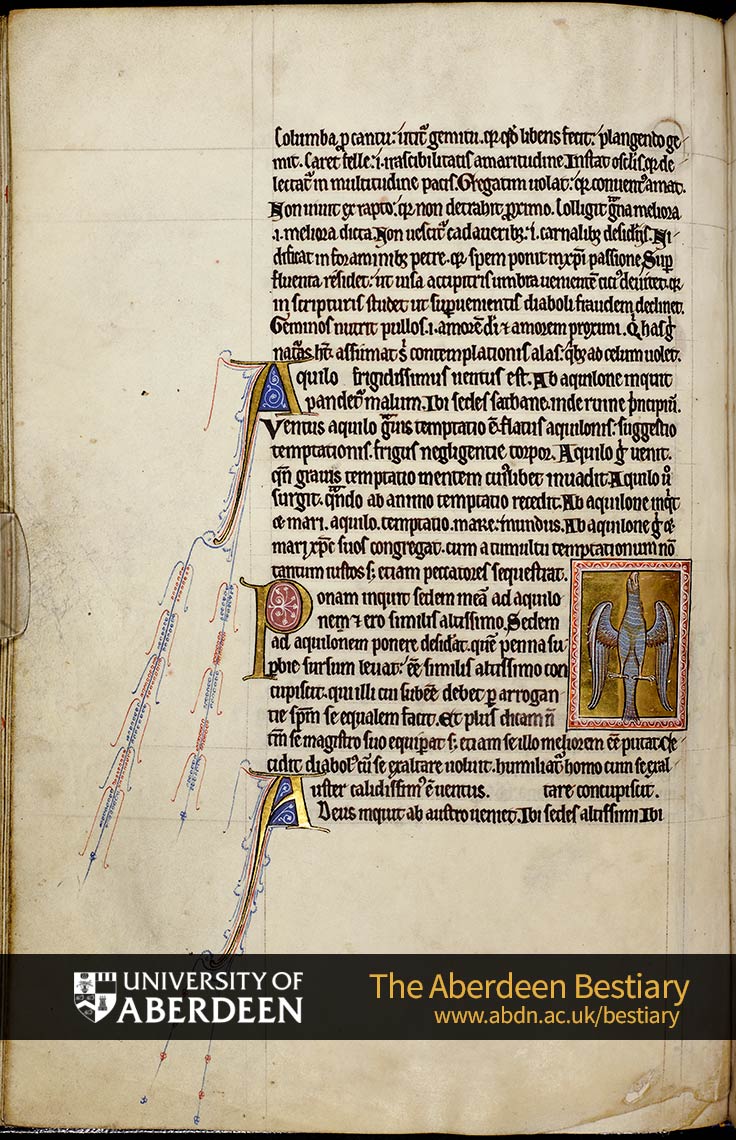 Columba ꝑ cantu: utit᷑ gemitu. qꝛ qd̄ libens fecit: plangendo ge
mit. Caret felle: .i. irascibilitatis amaritudine. Instat osc̄lis. qꝛ de
lectat᷑ in multitudine pacis. Gregatim uolat: qꝛ conuent᷒ amat.
Non uiuit ex rapto: qꝛ non detrahit ꝓximo. Colligit gͣna meliora
.i. meliora dicta. Non uescit᷑ cadaueribꝫ: .i. carnalibꝫ desid̄iis. Ni
dificat in foraminibꝫ petre. qꝛ spem ponit in xp̄i passione. Suꝑ
fluenta residet: ut uisa accipitris umbra uenientē citi᷒ deuitet. qꝛ
in scripturis studet ut suꝑuenientis diaboli fraudem declinet.
Geminos nutrit pullos .i. amorē dī & amorem proximi. Qͥ has gͦ
naturas ht᷑. assumat sͥ contemplationis alas: qͥbꝫ ad celum uolet.
Aquilo frigidissimus uentus est. Ab aquilone inquit
pandet᷑ malum. Ibi sedes sathane. inde ruine pͥncipiū.
Ventus aquilo gͣuis temptatio ē. flatus aquilonis: suggestio
temptationis. frigus negligentie torpor. Aquilo gͦ uenit.
qn̄ grauis temptatio mentem cui᷒libet inuadit. Aquilo u̇
surgit. qͣndo ab animo temptatio recedit. Ab aquilone inqͥt
& mari. aquilo. temptatio. mare: mundus. Ab aquilone gͦ &
mari xp̄c suos congregat. cum a tumultu temptationum nō
tantum iustos s; etiam peccatores sequestrat.
Ponam inquit sedem meā ad aquilo
nem & ero similis altissimo. Sedem
ad aquilonem ponere desid̄at. quē penna su
ꝑbie sursum leuat: eē similis altissimo con
cupiscit. qui illi cui subeē debet ꝑ arrogan
tie spm̄ se equalem facit. Et plus dicam ñ
tm̄ se magistro suo equiꝑat s; etiam se illo meliorem eē putat. Ce
cidit diabol᷒ cū se exaltare uoluit. humiliat᷑ homo cum se exal
Auster calidissim᷒ ē uentus. tare concupiscit.
Deus inquit ab austro ueniet. Ibi sedes altissimi Ibi
UNIVERSITY OF
ABERDEEN
The Aberdeen Bestiary
www.abdn.ac.uk/bestiary